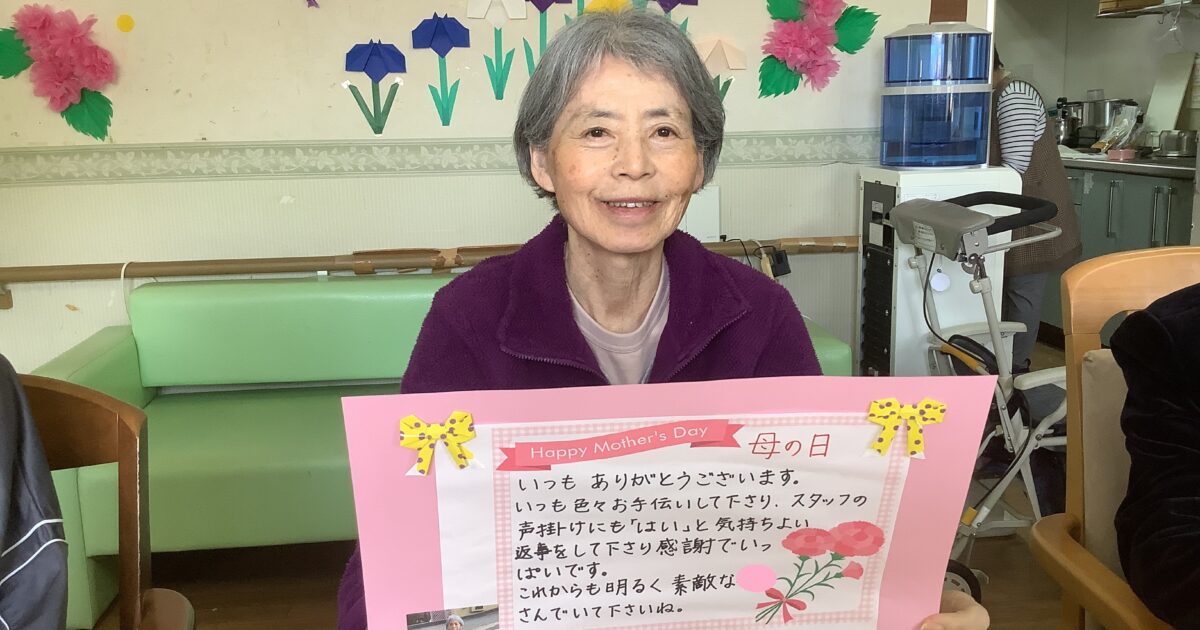 Happy Mother's Day
母の日
いつも ありがとうございます。
いつも色々お手伝いして下さり、スタッフの
声掛けにも「はい」と気持ちよい
返事をして下さり感謝でいっ
ぱいです。
これからも明るく素敵な
さんでいて下さいね。